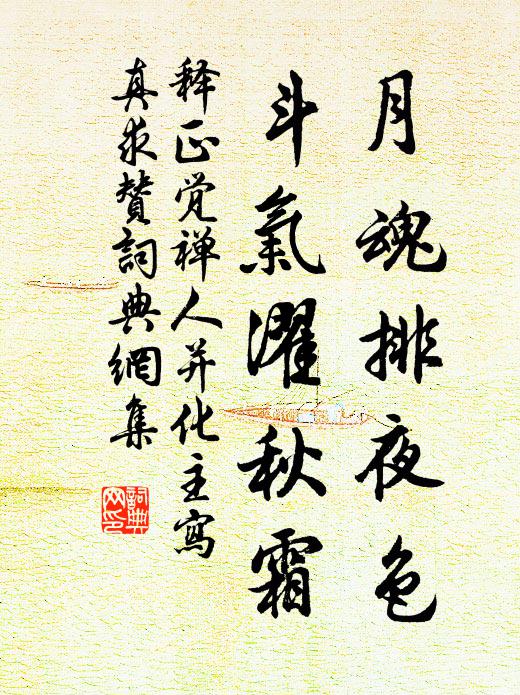 月魂排夜色
斗氣濯秋霜
释正觉禅人并化主寫
真求赞詞典網集
詞典
网印